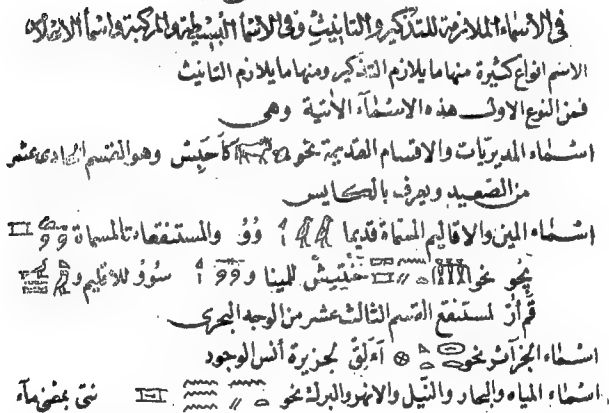 في الأسماء الملازمة للتذكير والتانيث وفى الاسماء البسيطة والمركبة واسماء
الاسم انواع كثيرة منها ما يلازم التذكير ومنها ما يلازم التانيث
فمن النوع الاول هذه الاسماء الآتية وهى
اسماء المديريات والاقسام القديمة نحو وهو القسم الحادى عشر
من الصعيد ويعرف بالكايس
اسماء المين والاقاليم المسماة قديما وُو والمستنقعات المسماة
پحو نحو للمينا و سوُو للاقليم و
لمستنقع القسم الثالث عشر من الوجه البحرى
اسماء الجزائر نحو لجزيرة أنس الوجود
اسماء المياه والبحار والنيل والانهر والبرك نحو بمعنى ماء